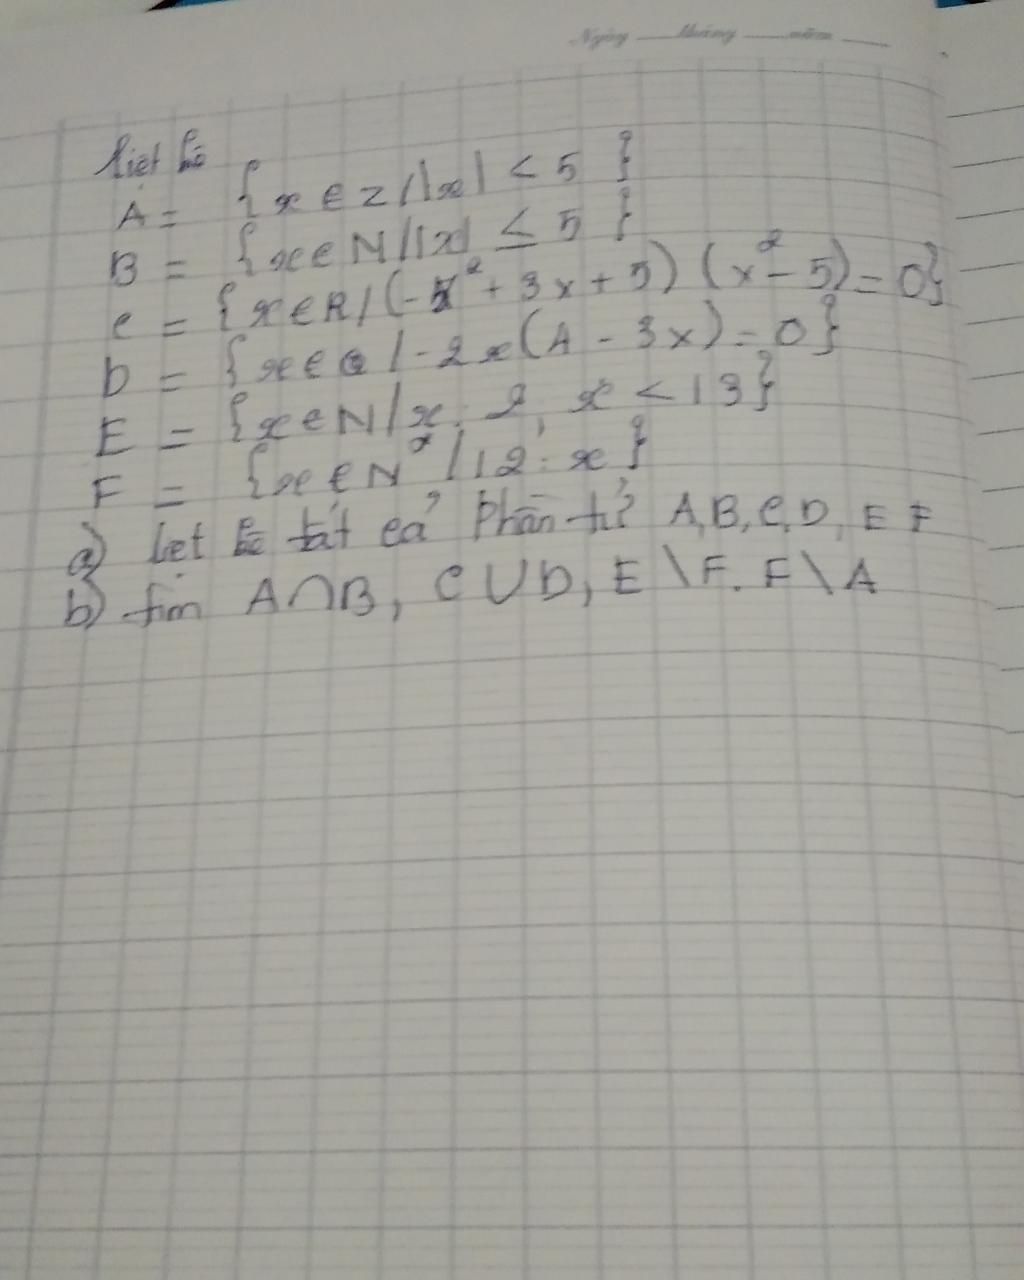 Ngày tháng năm
liệt kê
A = {x ∈ Z / |x| < 5 }
B = {x ∈ N / |x| ≤ 5 }
C = {x ∈ R / (-x² + 3x + 5) (x² - 5) = 0}
D = {x ∈ Q / -2x(4 - 3x) = 0}
E = {x ∈ N / x : 2, x < 13}
F = {x ∈ N* / 12 : x}
a) Let kê tất cả phần tử A, B, C, D, E F
b) tìm A∩B, C∪D, E\F. F\A